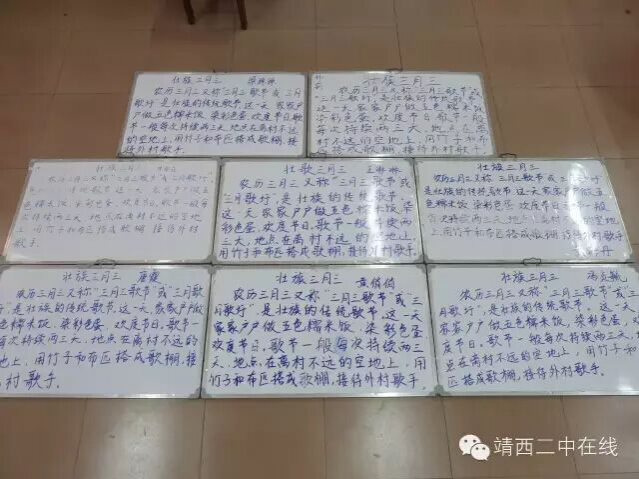 壮族三月三
农历三月三又称“三月三歌节”或“三月
歌圩”,是壮族的传统歌节,这一天,家家户
户做五色糯米饭,染彩色蛋,欢度节日,歌节
一般每次持续两三天,地点在离村不远的
空地上,用竹子和布匹搭成歌棚,
接待外村歌手。
壮族三月三
农历三月三又称“三月三歌节”或
“三月歌圩”,是壮族的传统歌节,
这一天,家家户户做五色糯米饭,
染彩色蛋,欢度节日,歌节一般
每次持续两三天,地点在离
村不远的空地上,用竹子和布
匹搭成歌棚,接待外村歌手
壮族三月三
农历三月三又称“三月三歌节”或“三月歌圩”,
是壮族的传统歌节,这一天,家家户户做五
色糯米饭,染彩色蛋,欢度节日,歌节一般每
次持续两三天,地点在离村不远的空地
上,用竹子和布匹搭成歌棚,接待外村
歌手。
壮歌三月三
农历三月三又称“三月三歌节”或
“三月歌圩”,是壮族的传统歌节,
这一天,家家户户做五色糯米饭,染
彩色蛋,欢度节日,歌节一般每次持续两
三天,地点在离村不远的空地上,
用竹子和布匹搭成歌棚,接待外村歌手。
壮族三月三
农历三月三又称“三月三歌节”或“三月歌圩”,
是壮族的传统歌节,这一天,家家户户做五
色糯米饭,染彩色蛋,欢度节日,歌节一般
每次持续两三天,地点在离村不远的空地
上,用竹子和布匹搭成歌棚,接待外村歌手。
壮族三月三
农历三月三又称“三月三歌节”或“三月
歌圩”,是壮族的传统歌节,这一天,家家户户做
五色糯米饭,染彩色蛋,欢度节日,歌节一般
每次持续两三天,地点在离村不远的空
地上,用竹子和布匹搭成歌棚,接待
外村歌手。
壮族三月三
农历三月三又称“三月三歌节”或“三
月歌圩”,是壮族的传统歌节,这一天,
家家户户做五色糯米饭,染彩色蛋,
欢度节日,歌节一般每次持续两三
天,地点在离村不远的空地上,用
竹子和布匹搭成歌棚,接待外村歌手。
壮族三月三
农历三月三又称“三月三歌节”或“三
月歌圩”,是壮族的传统歌节,这一天,
家家户户做五色糯米饭,染彩色蛋,欢
度节日,歌节一般每次持续两三天,地
点在离村不远的空地上,用竹子和布
匹搭成歌棚,接待外村歌手。
靖西二中在线